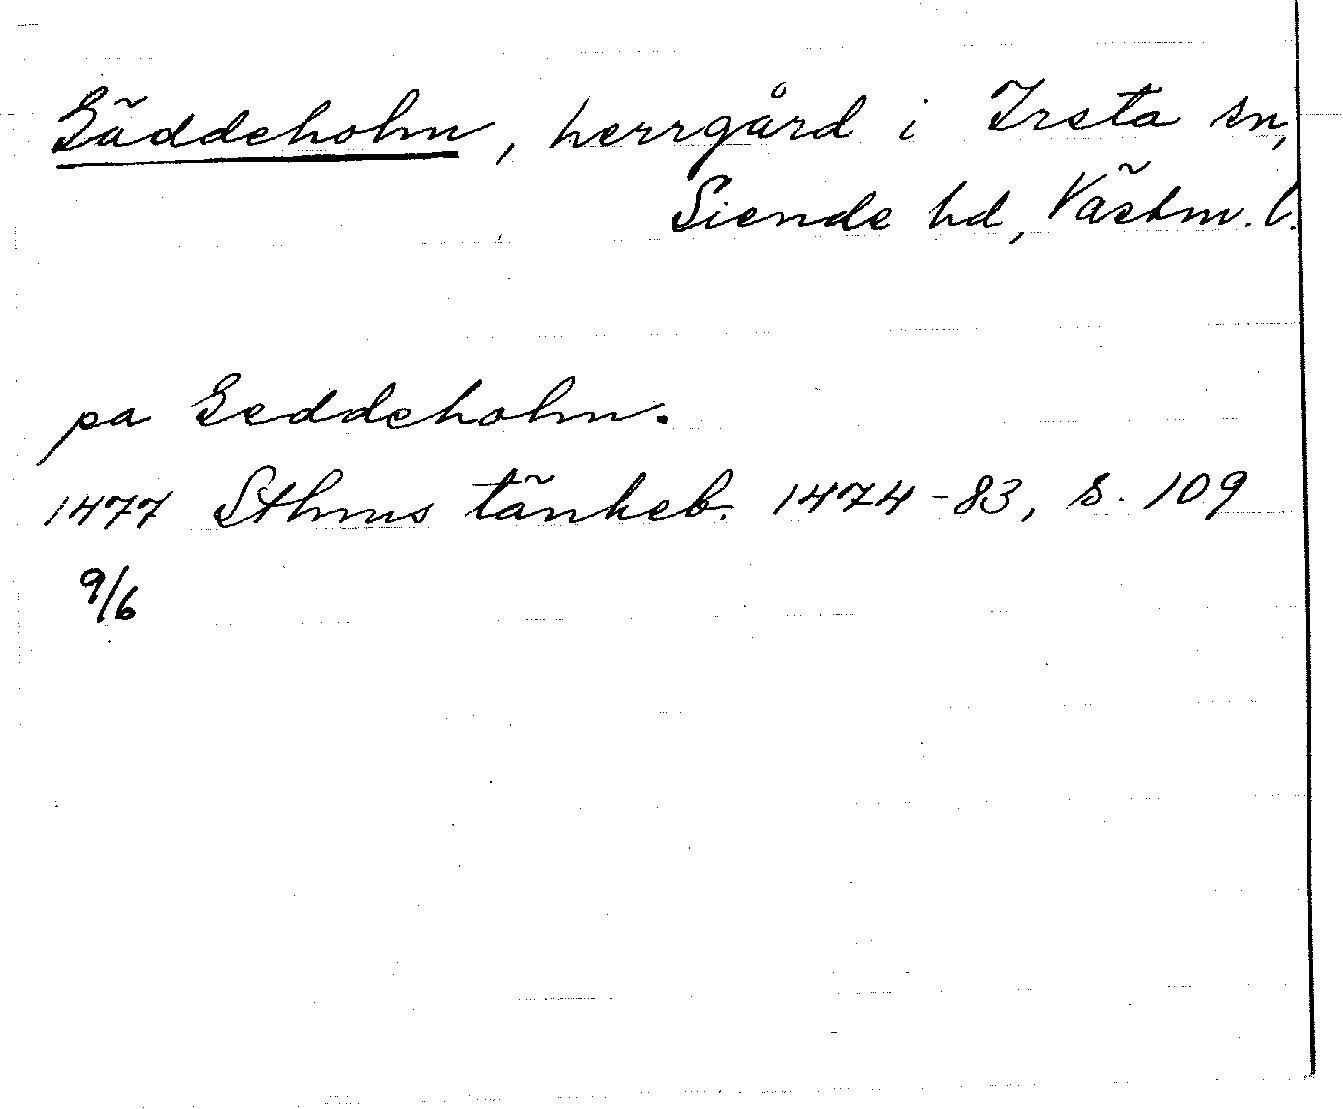 Gäddeholm, herrgård i Irsta sn,
Siende hd, Västm. l.
pa Geddeholm.
1477 Sthms tänkeb. 1474-83, s. 109
9/6